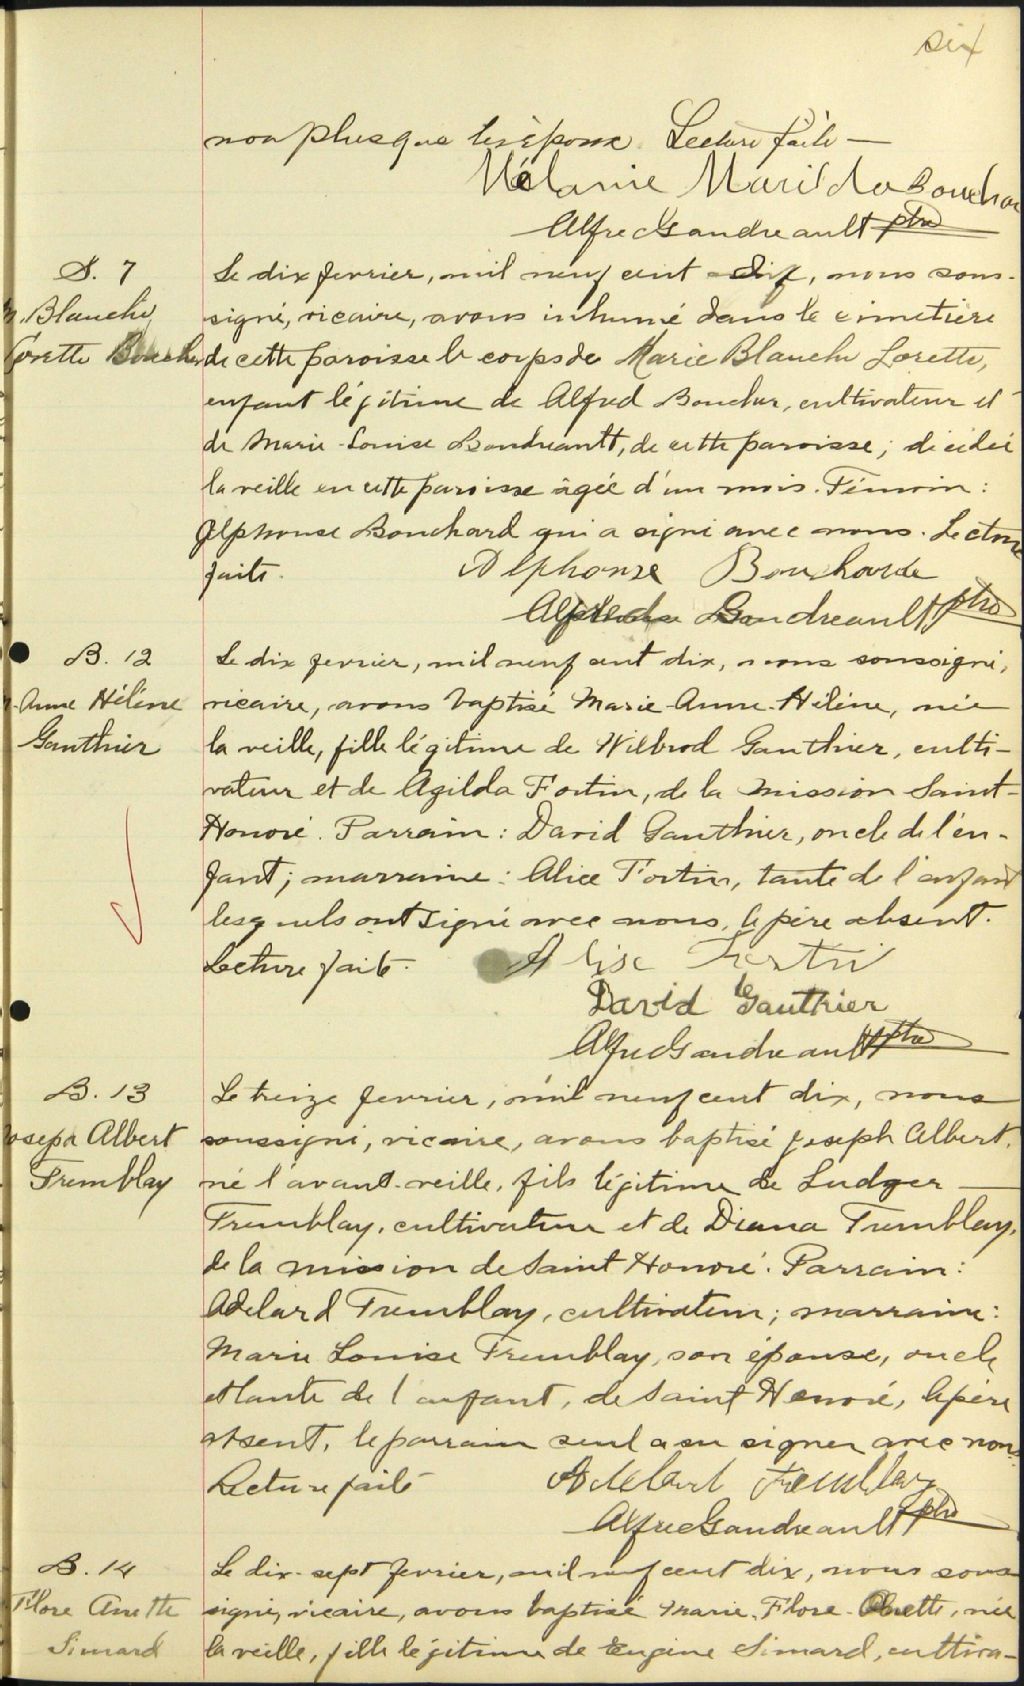 six
non plus que les époux. Lecture faite —
Mélanie Marilda Bouchar
Alfred Gaudreault ptre
S. 7
M. Blanche
Lorette Boucher
Le dix fevrier, mil neuf cent dix, nous sous-
signé, vicaire, avons inhumé dans le cimetière
de cette paroisse le corps de Marie Blanche Lorette,
enfant légitime de Alfred Boucher, cultivateur et
de Marie-Louise Boudreault, de cette paroisse; décédée
la veille en cette paroisse âgée d'un mois. Témoin:
Alphonse Bouchard qui a signé avec nous. Lecture
faite.
Alphonse Bouchard
Alfred Gaudreault, ptre
B. 12
M. Anne Hélène
Gauthier
Le dix fevrier, mil neuf cent dix, nous soussigné,
vicaire, avons baptisé Marie-Anne-Hélène, née
la veille, fille légitime de Wilbrod Gauthier, culti-
vateur et de Agilda Fortin, de la mission Saint-
Honoré. Parrain: David Gauthier, oncle de l'en-
fant; marraine: Alice Fortin, tante de l'enfant
lesquels ont signé avec nous, le père absent.
Lecture faite.
Alise Fortin
David Gauthier
Alfred Gaudreault ptre
B. 13
Joseph Albert
Tremblay
Le treize fevrier, mil neuf cent dix, nous
soussigné, vicaire, avons baptisé Joseph Albert,
né l'avant-veille, fils légitime de Ludger —
Tremblay, cultivateur et de Diana Tremblay,
de la mission de Saint Honoré. Parrain:
Adelard Tremblay, cultivateur; marraine:
Marie Louise Tremblay, son épouse, oncle
et tante de l'enfant, de Saint Honoré, le père
absent, le parrain seul a su signer avec nous.
Lecture faite
Adelard Tremblay
Alfred Gaudreault ptre
B. 14
Flore Anette
Simard
Le dix-sept fevrier, mil neuf cent dix, nous sous
signé, vicaire, avons baptisé Marie-Flore-Anette, née
la veille, fille légitime de Eugène Simard, cultiva-